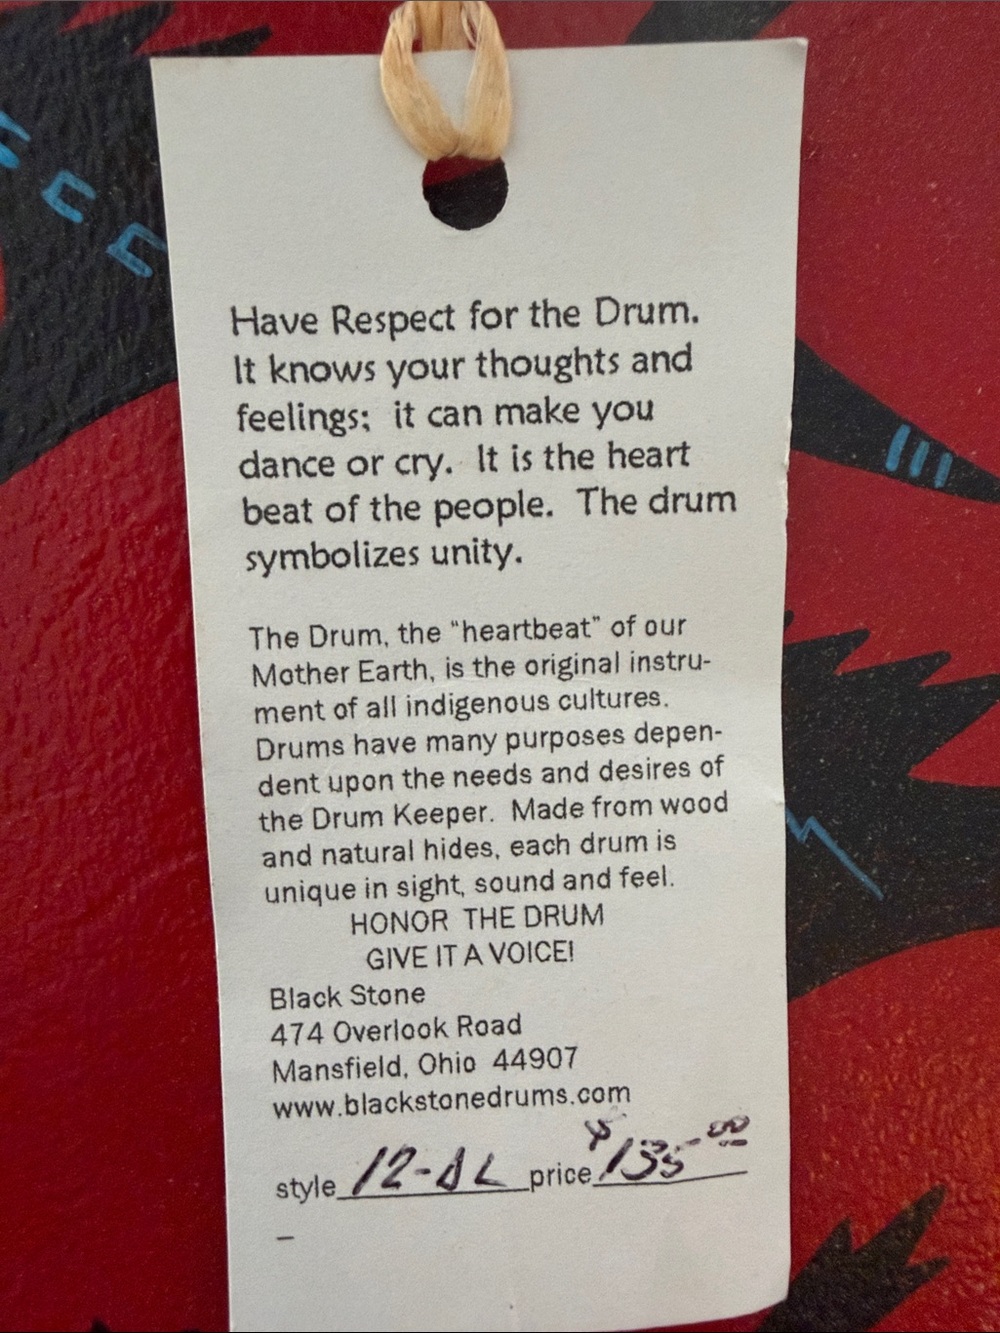 Have Respect for the Drum.
It knows your thoughts and
feelings;  it can make you
dance or cry.  It is the heart
beat of the people.  The drum
symbolizes unity.
The Drum, the "heartbeat" of our
Mother Earth, is the original instru-
ment of all indigenous cultures.
Drums have many purposes depen-
dent upon the needs and desires of
the Drum Keeper.  Made from wood
and natural hides, each drum is
unique in sight, sound and feel.
HONOR THE DRUM
GIVE IT A VOICE!
Black Stone
474 Overlook Road
Mansfield, Ohio  44907
www.blackstonedrums.com
style 12-DL price $135.00